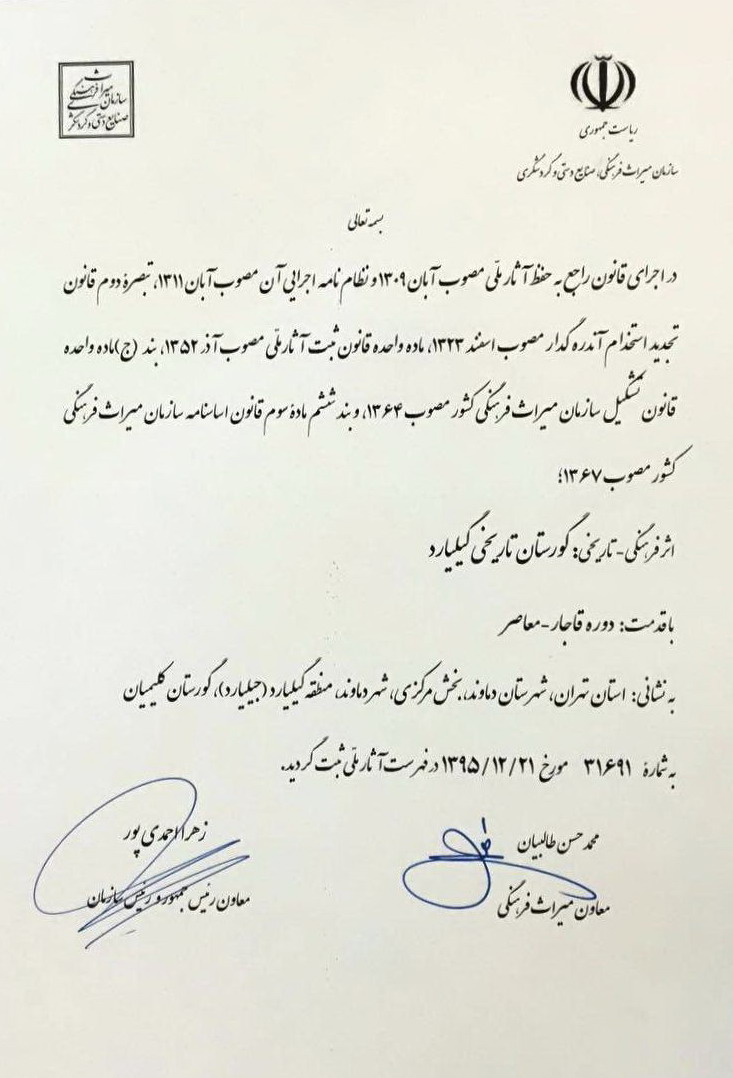 سازمان میراث فرهنگی
صنایع دستی و گردشگری
ریاست جمهوری
سازمان میراث فرهنگی، صنایع دستی و گردشگری
بسمه تعالی
در اجرای قانون راجع به حفظ آثار ملّی مصوب آبان ۱۳۰۹ و نظام نامه اجرایی آن مصوب آبان ۱۳۱۱، تبصرهٔ دوم قانون
تجدید استخدام آندره گدار مصوب اسفند ۱۳۲۳، ماده واحده قانون ثبت آثار ملّی مصوب آذر ۱۳۵۲، بند (ج) ماده واحده
قانون تشکیل سازمان میراث فرهنگی کشور مصوب ۱۳۶۴، و بند ششم مادهٔ سوم قانون اساسنامه سازمان میراث فرهنگی
کشور مصوب ۱۳۶۷؛
اثر فرهنگی - تاریخی: گورستان تاریخی گیلیارد
با قدمت: دوره قاجار - معاصر
به نشانی: استان تهران، شهرستان دماوند، بخش مرکزی، شهر دماوند، منطقه گیلیارد (جیلیارد)، گورستان کلیمیان
به شمارهٔ ۳۱۶۹۱ مورخ ۱۳۹۵/۱۲/۲۱ در فهرست آثار ملّی ثبت گردید.
محمد حسن طالبیان
معاون میراث فرهنگی
زهرا احمدی پور
معاون رئیس جمهور و رئیس سازمان